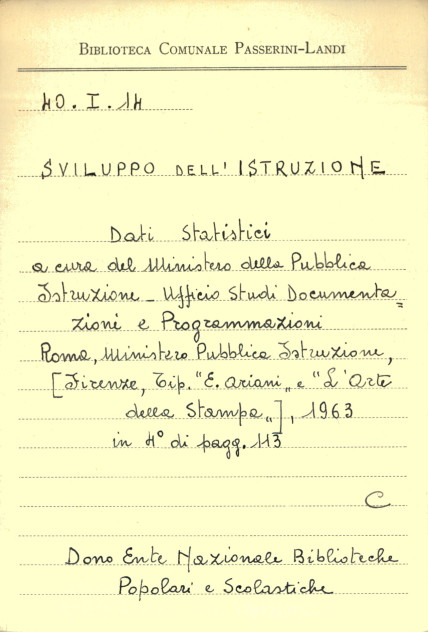 BIBLIOTECA COMUNALE PASSERINI-LANDI
40.I.14
SVILUPPO DELL'ISTRUZIONE
Dati Statistici
a cura del Ministero della Pubblica
Istruzione - Ufficio Studi Documenta=
zioni e Programmazioni
Roma, Ministero Pubblica Istruzione,
[Firenze, Tip. "E. Ariani" e "L'Arte
della Stampa"], 1963
in 4° di pagg. 113
C
Dono Ente Nazionale Biblioteche
Popolari e Scolastiche